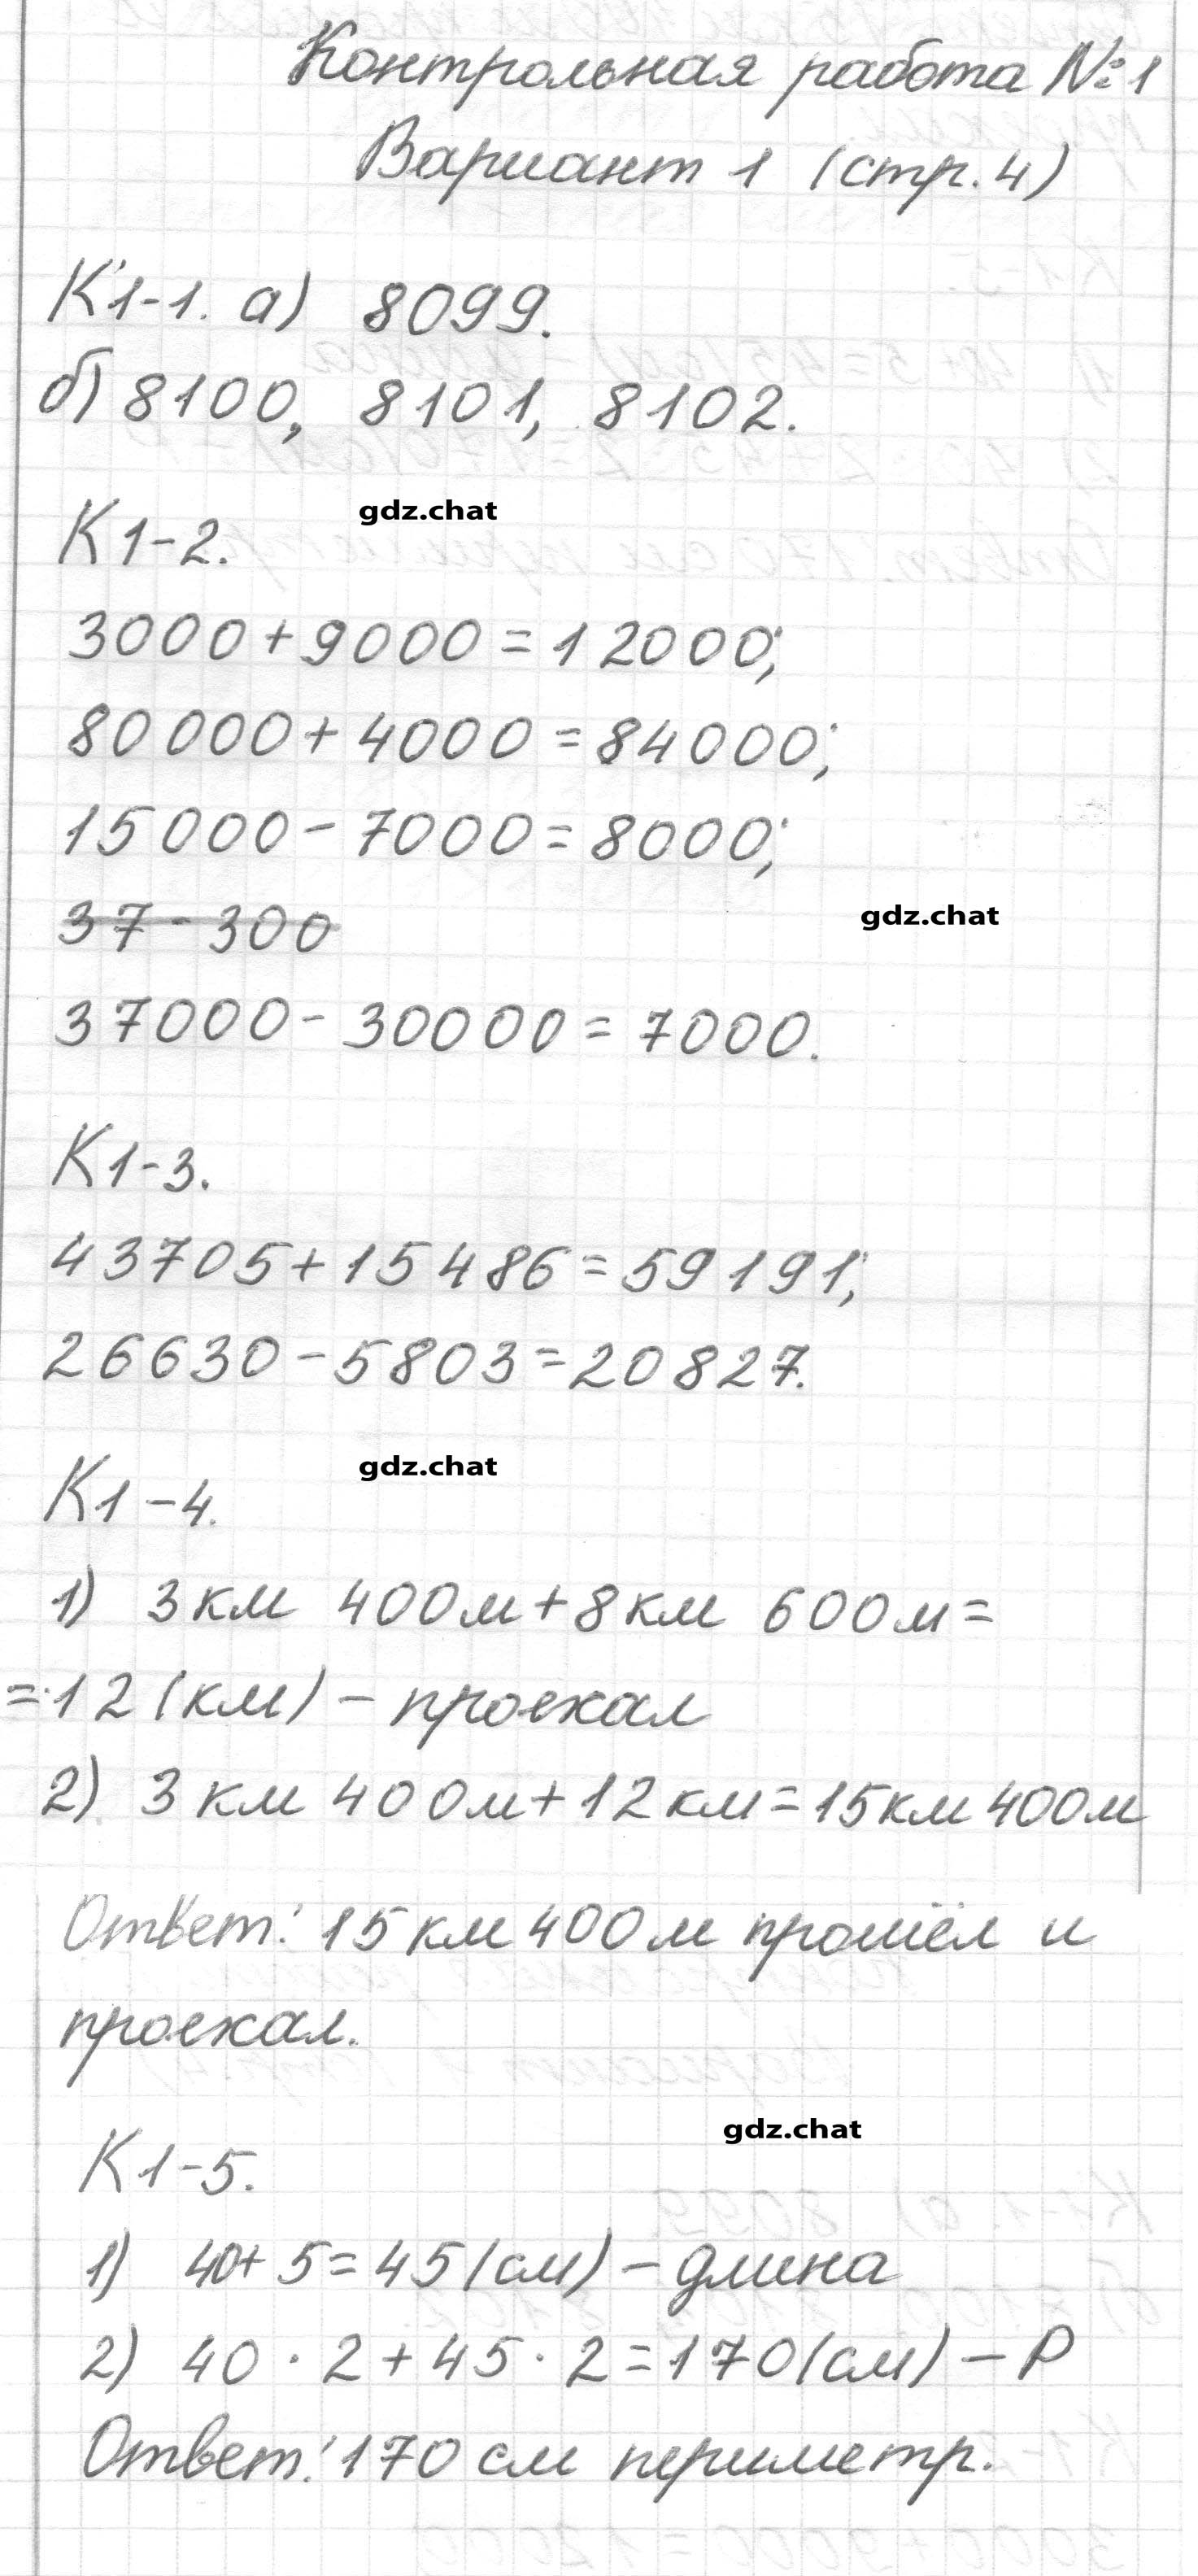 Контрольная работа №1
Вариант 1 (стр. 4)
К1-1. а) 8099.
б) 8100, 8101, 8102.
gdz.chat
К1-2.
3000+9000=12000;
80000+4000=84000;
15000-7000=8000;
37-300
gdz.chat
37000-30000=7000.
К1-3.
43705+15486=59191;
26630-5803=20827.
gdz.chat
К1-4.
1) 3км 400м+8км 600м=
=12(км)-проехал
2) 3км 400м+12км=15км 400м
Ответ: 15км 400м прошёл и
проехал.
gdz.chat
К1-5.
1) 40+5=45(см)-длина
2) 40·2+45·2=170(см)-Р
Ответ: 170см периметр.